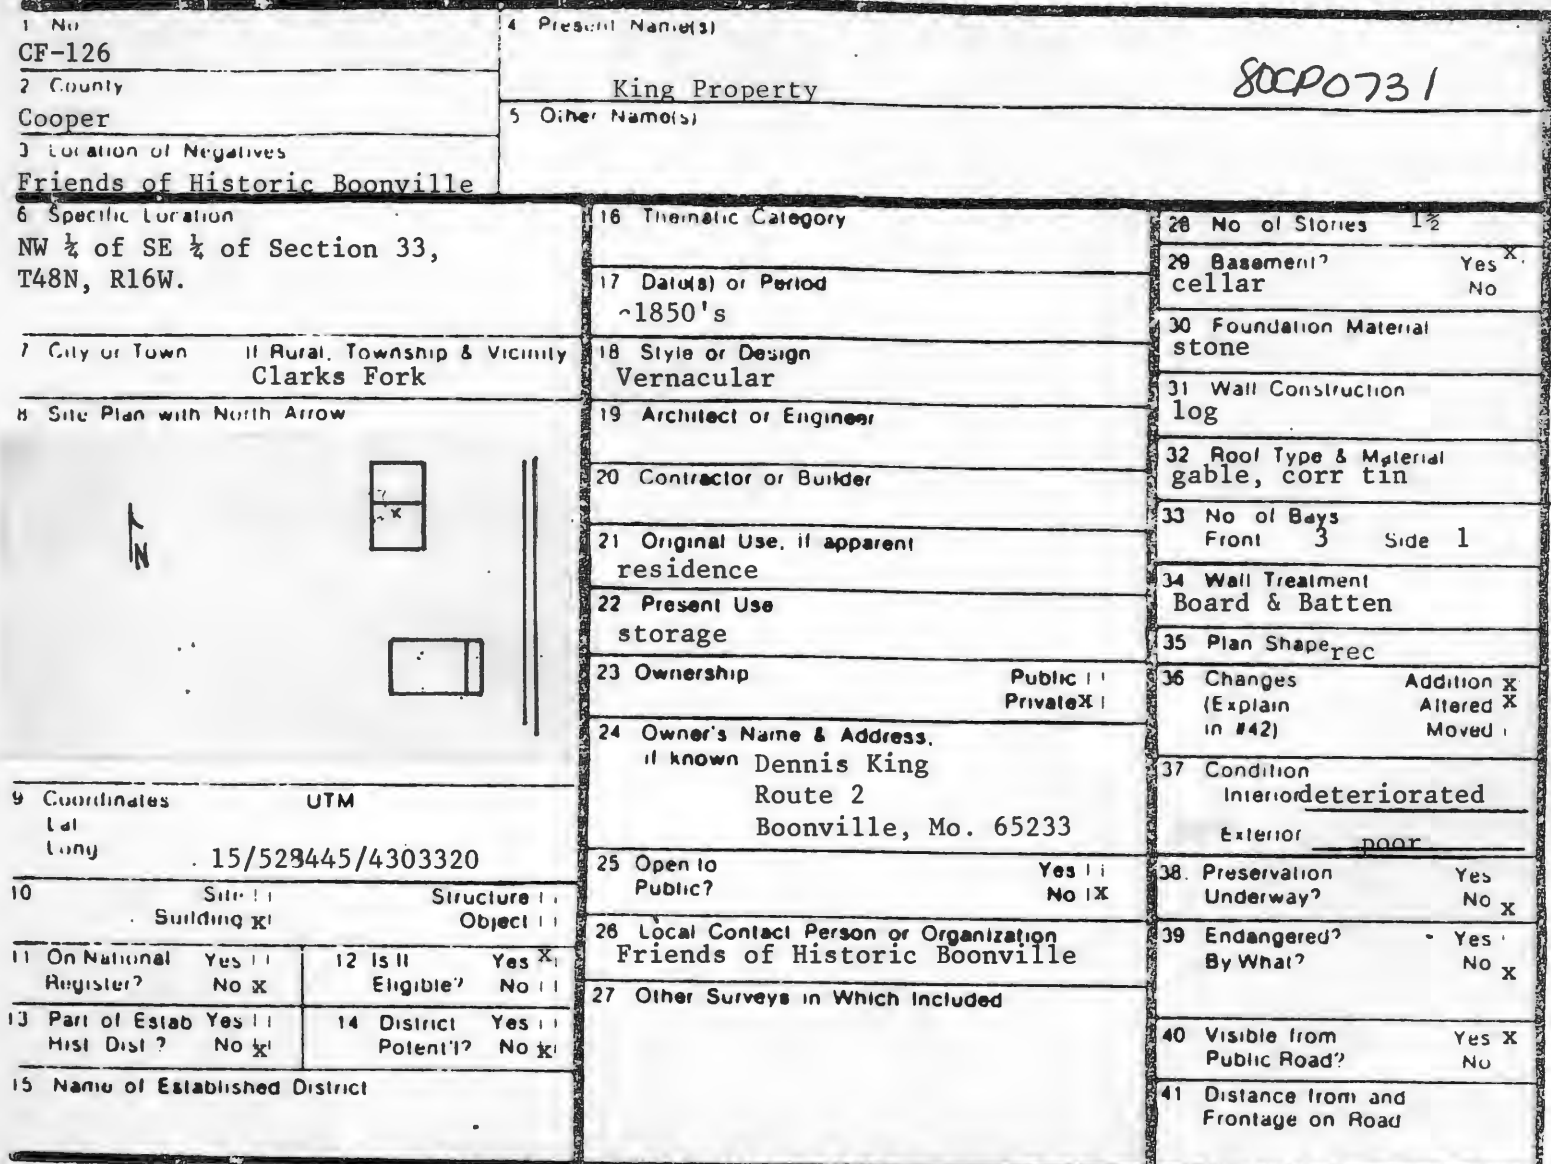 1 No
CF-126
2 County
Cooper
3 Location of Negatives
Friends of Historic Boonville
4 Present Name(s)
King Property
80CP0731
5 Other Name(s)
6 Specific Location
NW ¼ of SE ¼ of Section 33,
T48N, R16W.
7 City or Town If Rural, Township & Vicinity
Clarks Fork
8 Site Plan with North Arrow
x
N
9 Coordinates UTM
Lat
Long
15/528445/4303320
10 Site Structure
Building x Object
11 On National Yes
Register? No x
12 Is It Yes x
Eligible? No
13 Part of Estab Yes
Hist Dist? No x
14 District Yes
Potent'l? No x
15 Name of Established District
16 Thematic Category
17 Date(s) or Period
~1850's
18 Style or Design
Vernacular
19 Architect or Engineer
20 Contractor or Builder
21 Original Use, if apparent
residence
22 Present Use
storage
23 Ownership Public
Private X
24 Owner's Name & Address,
if known Dennis King
Route 2
Boonville, Mo. 65233
25 Open to Yes
Public? No X
26 Local Contact Person or Organization
Friends of Historic Boonville
27 Other Surveys in Which Included
28 No of Stories 1½
29 Basement? Yes x
cellar No
30 Foundation Material
stone
31 Wall Construction
log
32 Roof Type & Material
gable, corr tin
33 No of Bays
Front 3 Side 1
34 Wall Treatment
Board & Batten
35 Plan Shape rec
36 Changes Addition x
(Explain Altered x
in #42) Moved
37 Condition
Interior deteriorated
Exterior poor
38. Preservation Yes
Underway? No x
39 Endangered? Yes
By What? No x
40 Visible from Yes x
Public Road? No
41 Distance from and
Frontage on Road